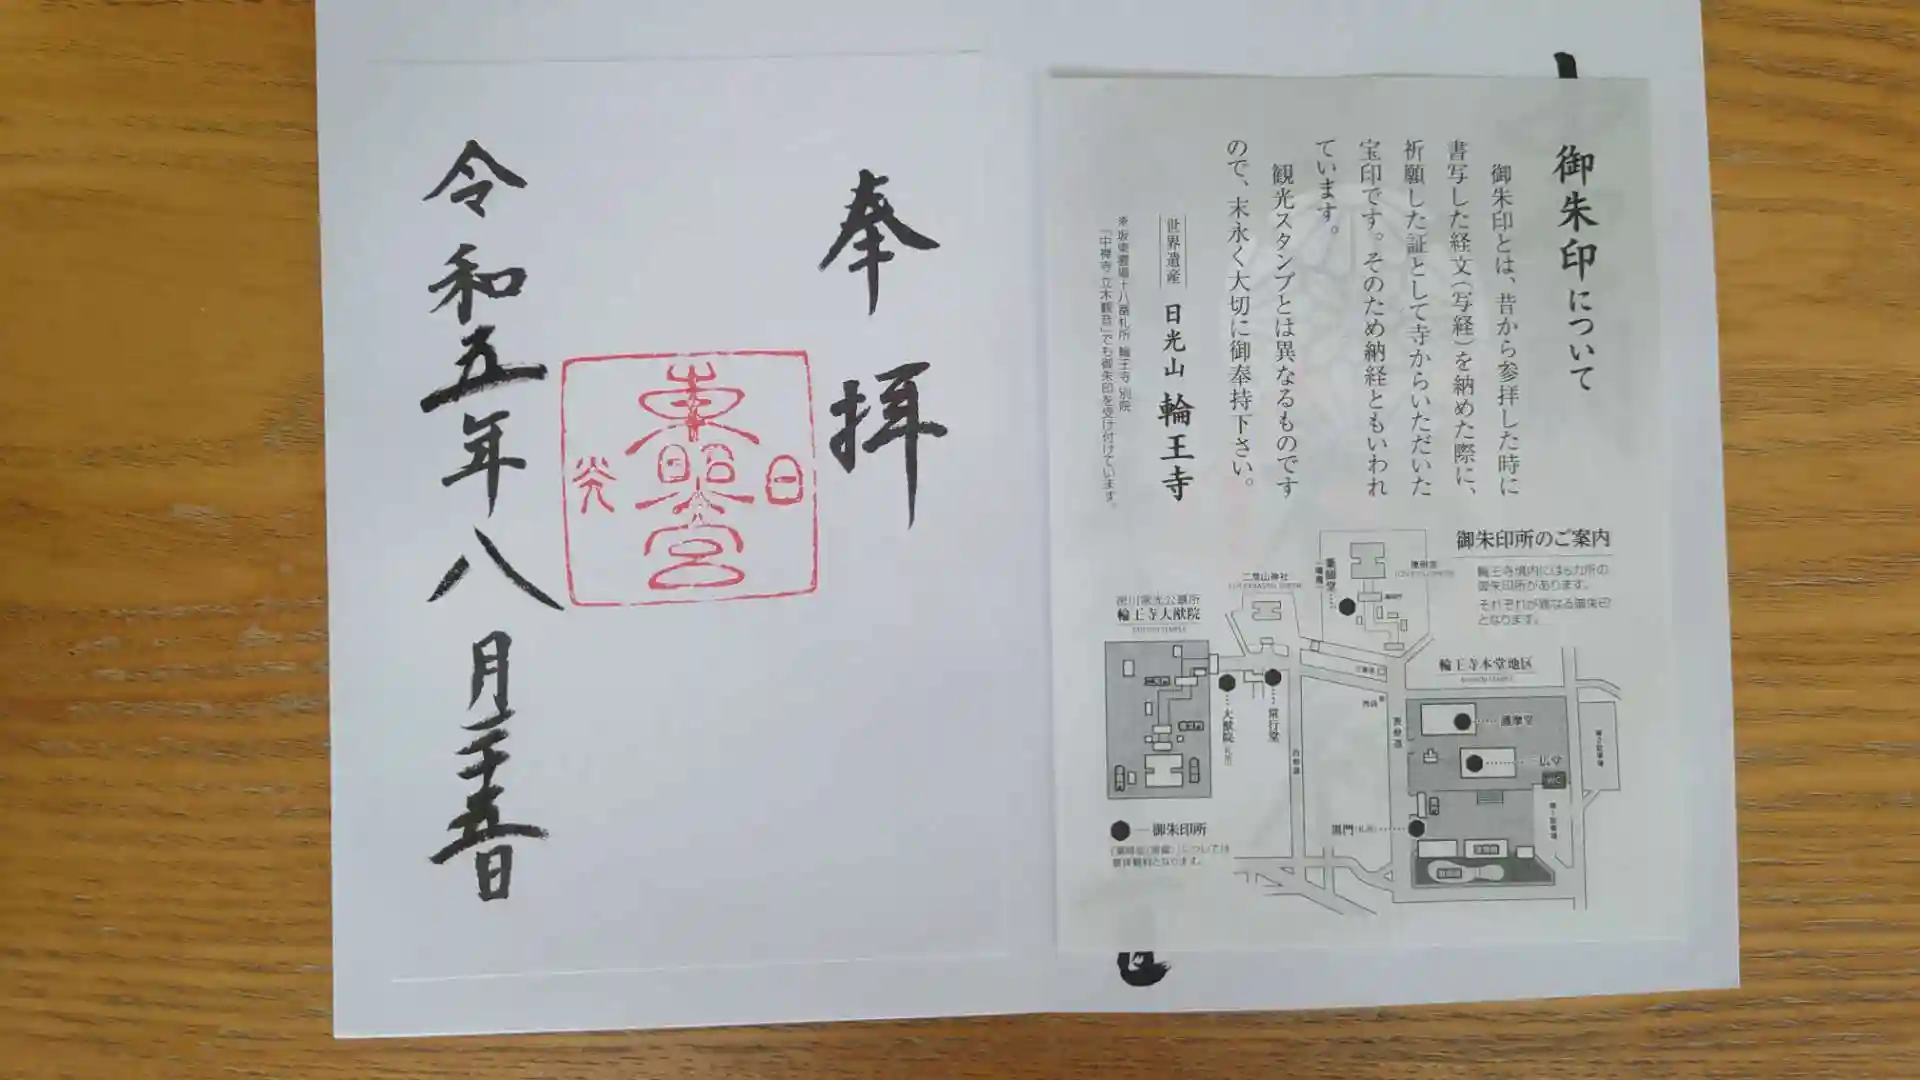 御朱印について
御朱印とは、昔から参拝した時に
書写した経文（写経）を納めた際に、
祈願した証として寺からいただいた
宝印です。そのため納経ともいわれ
ています。
観光スタンプとは異なるものです
ので、末永く大切に御奉持下さい。
世界遺産 日光山 輪王寺
※坂東霊場十八番札所 輪王寺 別院
「中禅寺 立木観音」でも御朱印を受け付けています。
御朱印所のご案内
輪王寺境内には6カ所の
御朱印所があります。
それぞれが異なる御朱印
となります。
二荒山神社
東照宮
薬師堂
徳川家光公墓所
輪王寺大猷院
輪王寺本堂地区
大猷院
常行堂
西参道
表参道
護摩堂
三仏堂
WC
黒門
第1駐車場
第2駐車場
御朱印所
奉拝
日光
東照宮
令和五年八月二十五日